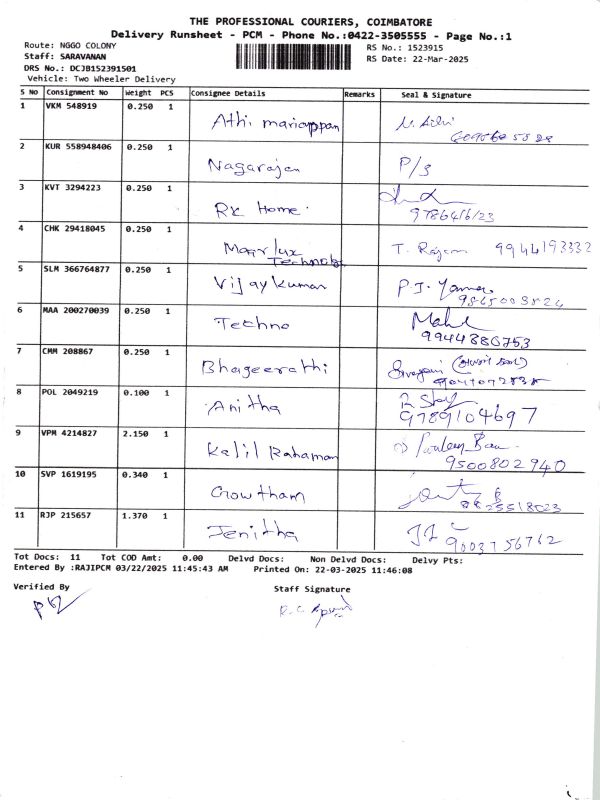 THE PROFESSIONAL COURIERS, COIMBATORE
Delivery Runsheet - PCM - Phone No.:0422-3505555 - Page No.:1
Route: NGGO COLONY RS No.: 1523915
Staff: SARAVANAN RS Date: 22-Mar-2025
DRS No.: DCJB152391501
Vehicle: Two Wheeler Delivery
S No Consignment No Weight PCS Consignee Details Remarks Seal & Signature
1 VKM 548919 0.250 1 Athi mariappan
2 KUR 558948406 0.250 1 Nagarajan P/3
3 KVT 3294223 0.250 1 RK Home 9786456123
4 CHK 29418045 0.250 1 Magrlux Technolo T. Rajam 9944193332
5 SLM 366764877 0.250 1 Vijaykuman P.J.
6 MAA 200270039 0.250 1 Techno 9944886753
7 CMM 208867 0.250 1 Bhageerathi
8 POL 2049219 0.100 1 Anitha 9789104697
9 VPM 4214827 2.150 1 Kalil Rahaman 9500802940
10 SVP 1619195 0.340 1 Gowtham
11 RJP 215657 1.370 1 Jenitha 9003756762
Tot Docs: 11 Tot COD Amt: 0.00 Delvd Docs: Non Delvd Docs: Delvy Pts:
Entered By :RAJIPCM 03/22/2025 11:45:43 AM Printed On: 22-03-2025 11:46:08
Verified By Staff Signature